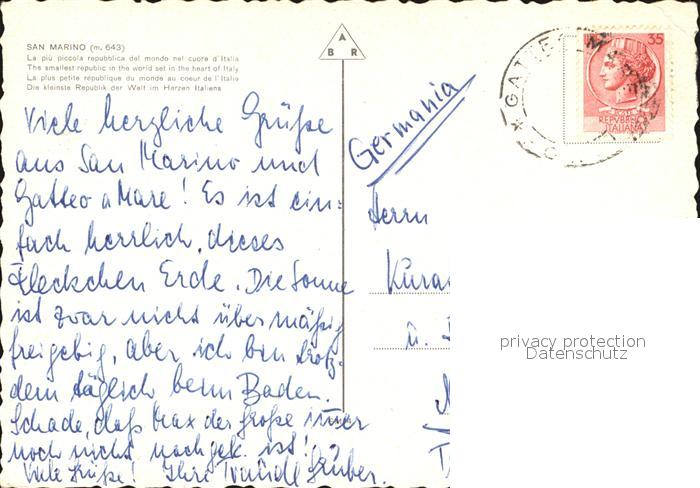 SAN MARINO (m. 643)
La più piccola repubblica del mondo nel cuore d'Italia
The smallest republic in the world set in the heart of Italy
La plus petite république du monde au coeur de l'Italie
Die kleinste Republik der Welt im Herzen Italiens
A
B R
GATTEO
35
REPVBBLICA
ITALIANA
Viele herzliche Grüße
aus San Marino und
Gatteo a Mare! Es ist ein=
fach herrlich, dieses
Fleckchen Erde. Die Sonne
ist zwar nicht übermäßig
freigebig, aber ich bin trotz-
dem täglich beim Baden.
Schade, daß Max der Große immer
noch nicht nachgek. ist!
Viele Grüße! Ihre Gruber.
Germania
Herrn
Kura
u.
privacy protection
Datenschutz